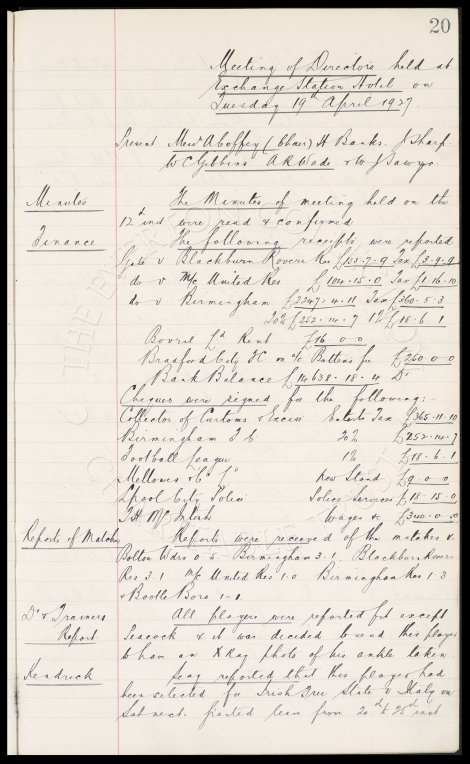 20
Meeting of Directors held at
Exchange Station Hotel on
Tuesday 19th April 1927
Present Messrs Coffey (Chair) H Banks. J Sharp
W C Gibbins A R Wade & W J Sawyer
Minutes The Minutes of meeting held on the
12th inst were read & confirmed
Finance The following receipts were reported
Gate v Blackburn Rovers Res £135-7-9 Tax £3-9-9
do v M/c United Res £104-15-0 Tax £1-16-10
do v Birmingham £2247-4-11 Tax £360-5-3
20% £252-14-7 1% £18-6-1
Bovril Ld Rent £16-0-0
Bradford City FC on a/c Battens fee £260-0-0
Bank Balance £14638-18-4 Dr
Cheques were signed for the following:-
Collector of Customs & Excise Enterts Tax £365-11-10
Birmingham F C 20% £252-14-7
Football League 1% £18-6-1
Mellowes & Co Ld New Stand £9-0-0
Lpool City Police Police Services £18-15-0
T H McIntosh Wages &c £340-0-0
Reports of Matches Reports were received of the matches v.
Bolton Wdrs 0-5 Birmingham 3-1. Blackburn Rovers
Res 3.1 M/c United Res 1-0. Birmingham Res 1-3
& Bootle Boro 1-1
Drs & Trainers Report. All players were reported fit except
Peacock & it was decided to send this player
to have an X Ray photo of his ankle taken.
Kendrick Secy reported that this player had
been selected for Irish Free State v Italy on
Sat next. Granted leave from 20th to 25th inst